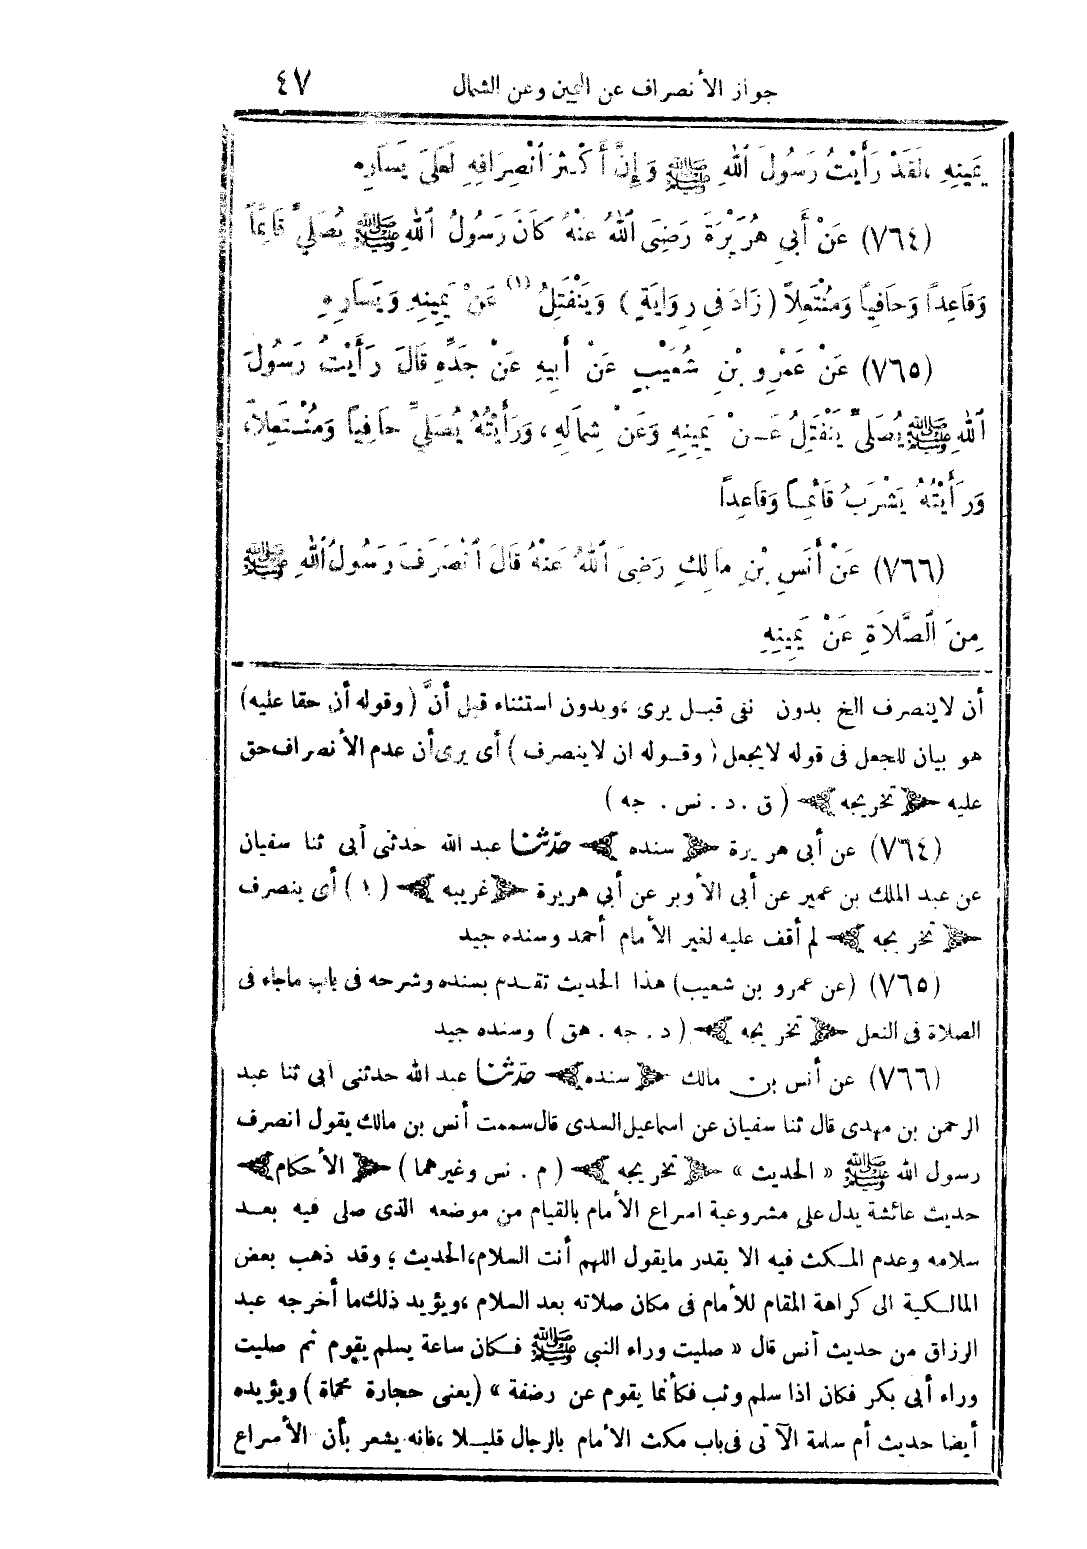 جواز الأنصراف عن اليمين وعن الشمال ٤٧
يَمِينِهِ ، لَقَدْ رَأَيْتُ رَسُولَ اللهِ ﷺ وَإِنَّ أَكْثَرَ انْصِرَافِهِ لَعَلَى يَسَارِهِ
(٧٦٤) عَنْ أَبِي هُرَيْرَةَ رَضِيَ اللهُ عَنْهُ كَانَ رَسُولُ اللهِ ﷺ يُصَلِّي قَائِمًا
وَقَاعِدًا وَحَافِيًا وَمُنْتَعِلاً (زَادَ فِي رِوَايَةٍ) وَيَنْفَتِلُ (١) عَنْ يَمِينِهِ وَيَسَارِهِ
(٧٦٥) عَنْ عَمْرِو بْنِ شُعَيْبٍ عَنْ أَبِيهِ عَنْ جَدِّهِ قَالَ رَأَيْتُ رَسُولَ
اللهِ ﷺ يُصَلِّي يَنْفَتِلُ عَنْ يَمِينِهِ وَعَنْ شِمَالِهِ ، وَرَأَيْتُهُ يُصَلِّي حَافِيًا وَمُنْتَعِلاً،
وَرَأَيْتُهُ يَشْرَبُ قَائِمًا وَقَاعِدًا
(٧٦٦) عَنْ أَنَسِ بْنِ مَالِكٍ رَضِيَ اللهُ عَنْهُ قَالَ انْصَرَفَ رَسُولُ اللهِ ﷺ
مِنَ الصَّلَاةِ عَنْ يَمِينِهِ
أن لاينصرف الخ بدون نفى قبل يرى ، وبدون استثناء قبل أنَّ (وقوله أن حقا عليه)
هو بيان للجعل فى قوله لايجعل (وقوله ان لاينصرف) أى يرى أن عدم الأنصراف حق
عليه ﴿تخريجه﴾ (ق . د . نس . جه)
(٧٦٤) عن أبى هريرة ﴿سنده﴾ حدّثنا عبد الله حدثنى أبى ثنا سفيان
عن عبد الملك بن عمير عن أبى الأوبر عن أبى هريرة ﴿غريبه﴾ (١) أى ينصرف
﴿تخريجه﴾ لم أقف عليه لغير الأمام أحمد وسنده جيد
(٧٦٥) (عن عمرو بن شعيب) هذا الحديث تقدم بسنده وشرحه فى باب ماجاء فى
الصلاة فى النعل ﴿تخريجه﴾ (د . جه . هق) وسنده جيد
(٧٦٦) عن أنس بن مالك ﴿سنده﴾ حدّثنا عبد الله حدثنى أبى ثنا عبد
الرحمن بن مهدى قال ثنا سفيان عن اسماعيل السدى قال سمعت أنس بن مالك يقول انصرف
رسول الله ﷺ « الحديث » ﴿تخريجه﴾ (م . نس وغيرهما) ﴿الأحكام﴾
حديث عائشة يدل على مشروعية اسراع الأمام بالقيام من موضعه الذى صلى فيه بعد
سلامه وعدم المكث فيه الا بقدر مايقول اللهم أنت السلام، الحديث ؛ وقد ذهب بعض
المالكية الى كراهة المقام للأمام فى مكان صلاته بعد السلام ، ويؤيد ذلك ما أخرجه عبد
الرزاق من حديث أنس قال « صليت وراء النبى ﷺ فكان ساعة يسلم يقوم ثم صليت
وراء أبى بكر فكان اذا سلم وثب فكأنما يقوم عن رضفة » (يعنى حجارة محماة) ويؤيده
أيضا حديث أم سلمة الآتى فى باب مكث الأمام بالرجال قليلا ، فانه يشعر بأن الأسراع